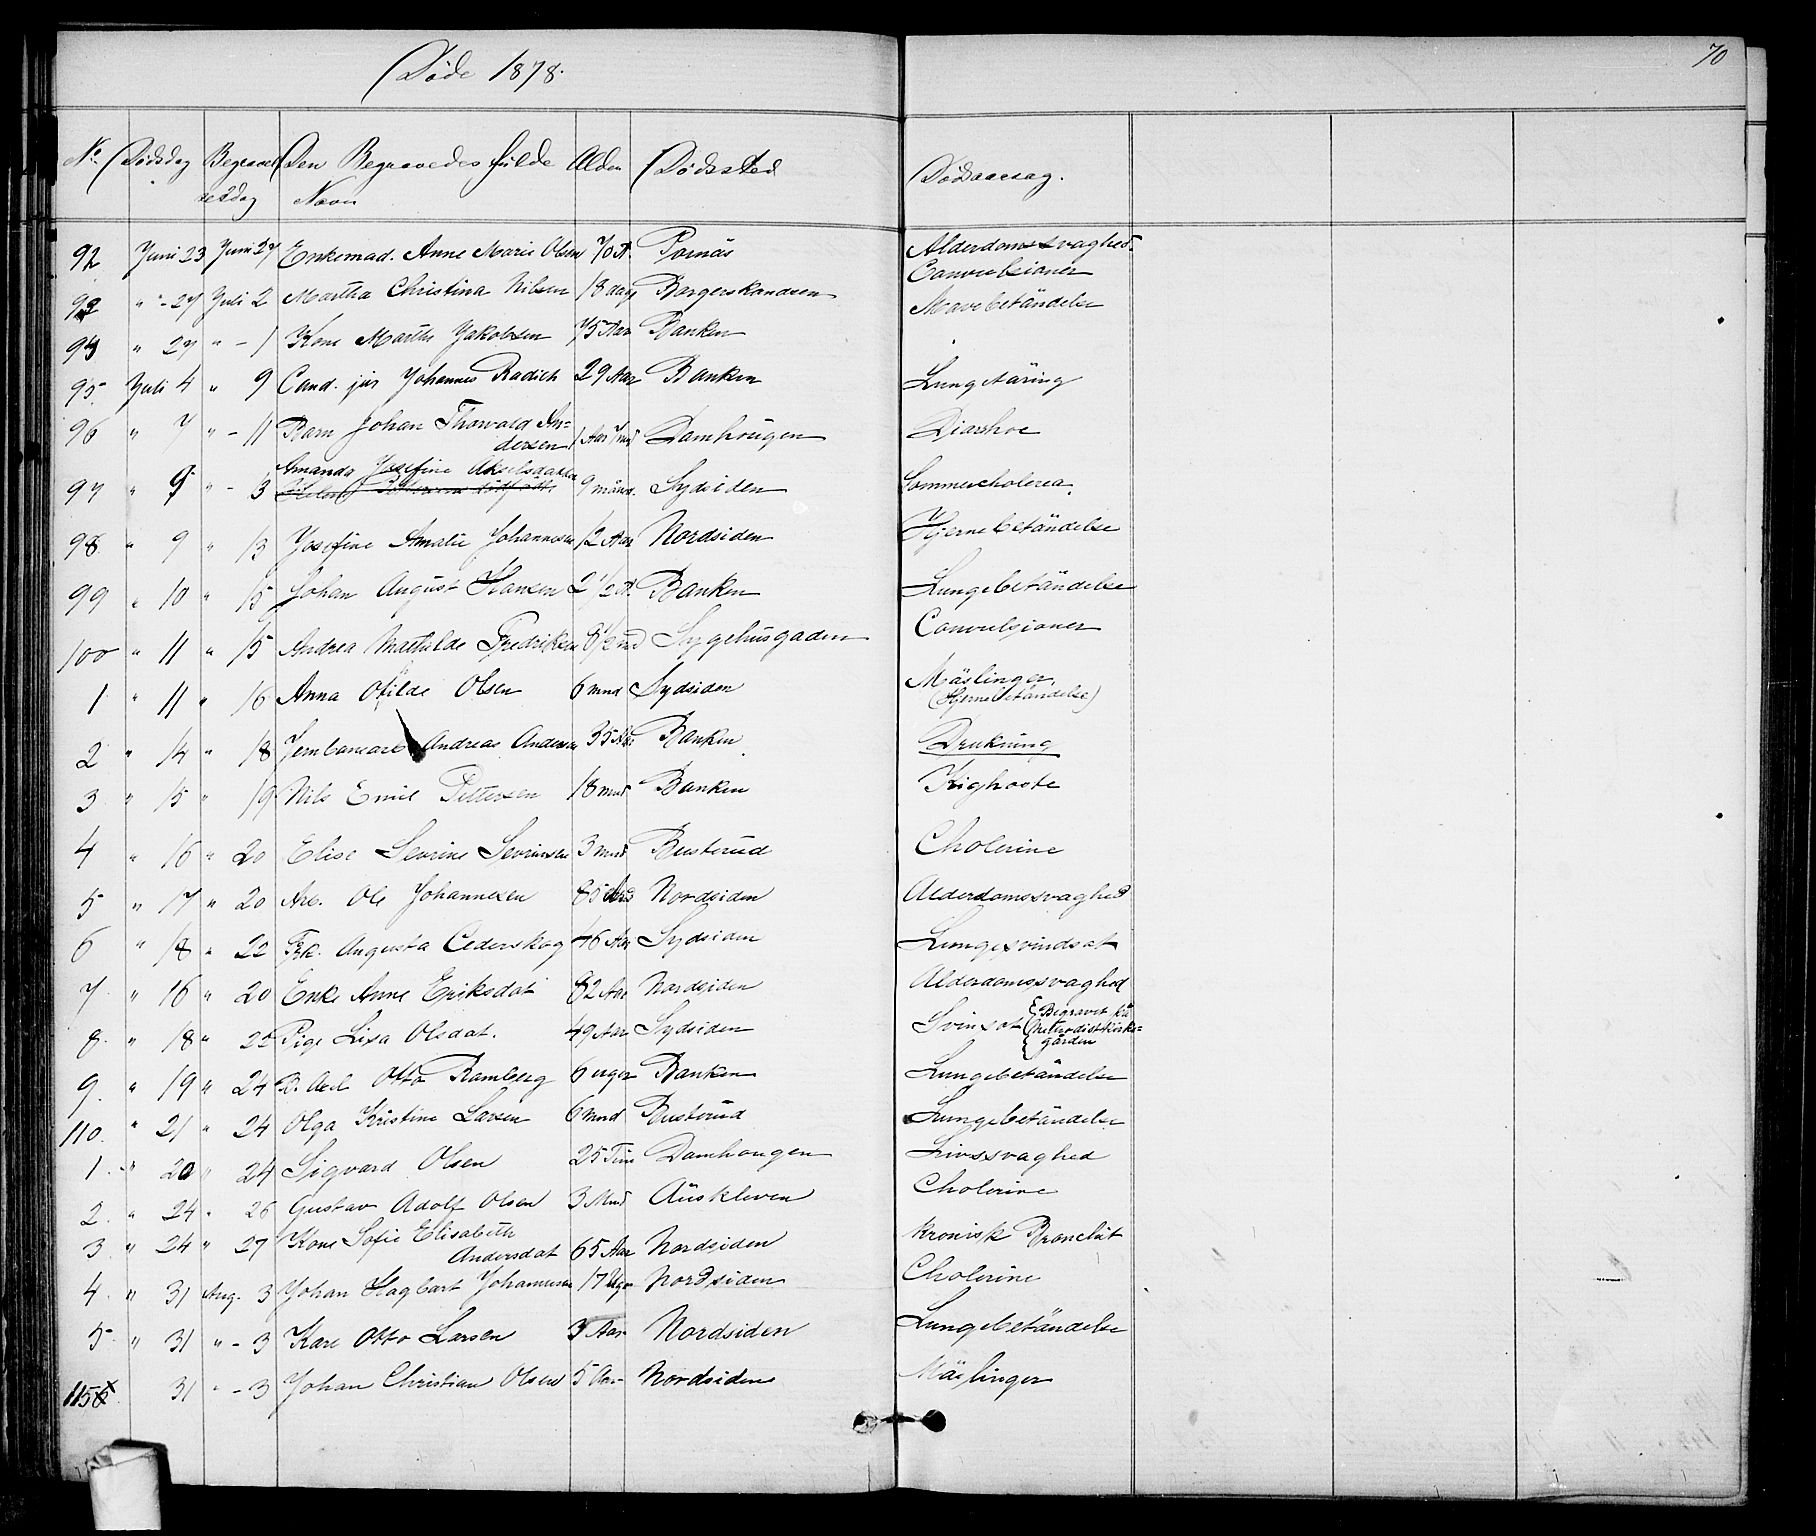 Døde 1878.
70
No. Dødsdag Begravelsesdag Den Begravedes fulde Navn Alder Dødssted Dødsaarsag.
92 Juni 23 Juni 27 Enkemad. Anne Marie Olsen 70 A. Pornäs Alderdomssvaghed
93 " - 27 Juli 2 Martha Christina Nilsen 18 dage Borgerskandsen Convulsioner
94 " 27 " - 1 Kone Marthe Jakobsen 75 Aar Banken Mavebetändelse
95 Juli 4 " 9 Cand. jur Johannes Radich 29 Aar Banken Lungetäring
96 " 7 " - 11 Barn Johan Thorvald Andersen 1 Aar 7 mnd Damhougen Diarrhoe
97 " 9 " - 3 Amanda Josefine Akselsdatter 9 månd. Sydsiden Sommercholera.
98 " 9 " 13 Josefine Amalie Johannesen 12 Aar Nordsiden Hjernebetändelse
99 " 10 " 15 Johan August Hansen 2 1/2 A. Banken Lungebetändelse
100 " 11 " 15 Andrea Mathilde Fredriksen 8 1/2 md Sygehusgaden Convulsioner
1 " 11 " 16 Anna Otilde Olsen 6 mnd Sydsiden Mäslinger. (Hjernebetändelse)
2 " 14 " 18 Andreas Andersen 35 Aar Banken Drukning
3 " 15 " 19 Nils Emil Pettersen 18 mnd Banken Kighoste
4 " 16 " 20 Elise Sevrine Sevrinsen 3 mnd Busterud Cholerine
5 " 17 " 20 Arb. Ole Johannesen 85 Aar Nordsiden Alderdomssvaghed
6 " 18 " 22 Frk. Augusta Cederskog 46 Aar Sydsiden Lungesvindsot
7 " 16 " 20 Enke Anne Eriksdat 82 Aar Nordsiden Alderdomssvaghed
8. " 18 " 22 Pige Lisa Olsdat. 49 Aar Sydsiden Svinsot (Begravet på Metodistkirkegården
9. " 19 " 24 B. Axel Otto Ramberg 6 uger Banken Lungebetändelse
110. " 21 " 24 Olga Kristine Larsen 6 mnd Busterud Lungebetändelse
1. " 20 " 24 Sigvard Olsen 25 Tim Damhougen Livssvaghed
2. " 24 " 26 Gustav Adolf Olsen 3 Mnd Aüskleven Cholerine
3 " 24 " 27 Kone Sofie Elisabeth Andersdat 65 Aar Nordsiden kronisk Bronchit
4. " 31 Aug. 3 Johan Hagbart Johannesen 17 Uger Nordsiden Cholerine
5. " 31 " - 3 Karl Otto Larsen 3 Aar Nordsiden Lungebetändelse
115 31 " - 3 Johan Christian Olsen 5 Aar Nordsiden Mäslinger